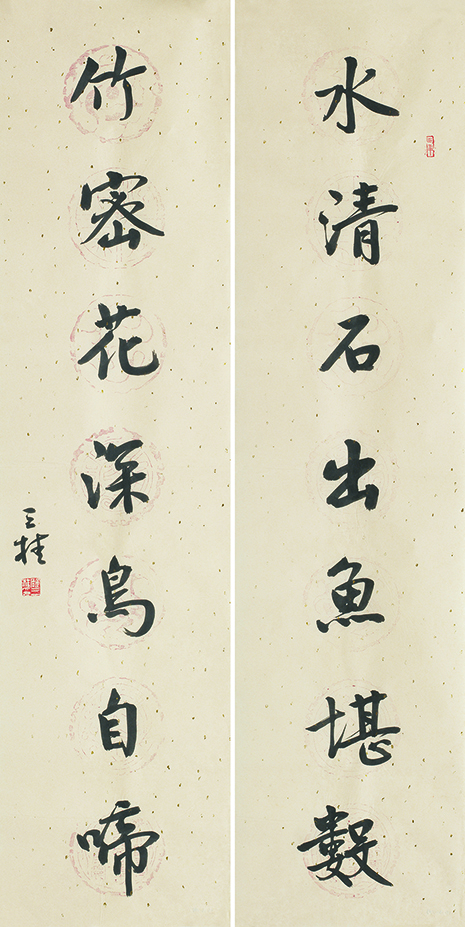 水清石出魚堪數
竹密花深鳥自啼
三桂